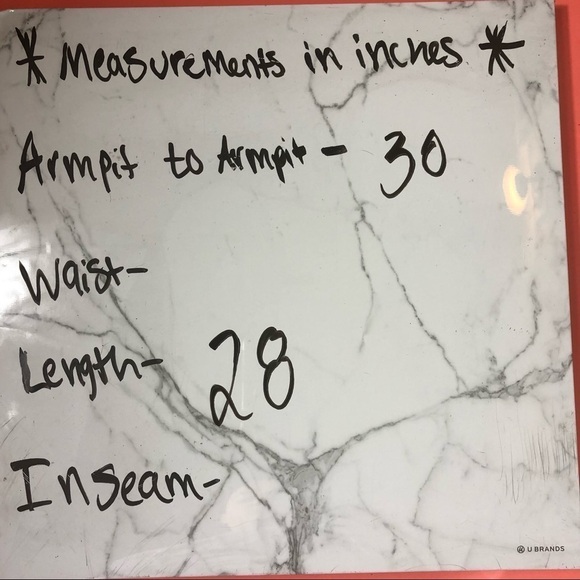 * Measurements in inches *
Armpit to Armpit - 30
Waist-
Length- 28
Inseam-
U BRANDS